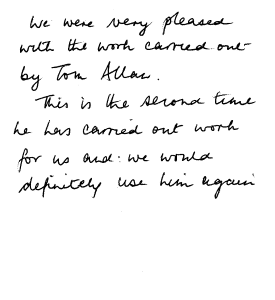 We were very pleased
with the work carried out
by Tom Allan.
This is the second time
he has carried out work
for us and we would
definitely use him again